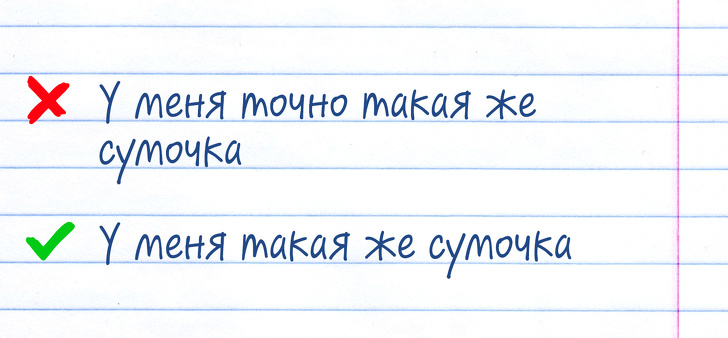 У меня точно такая же
сумочка
У меня такая же сумочка